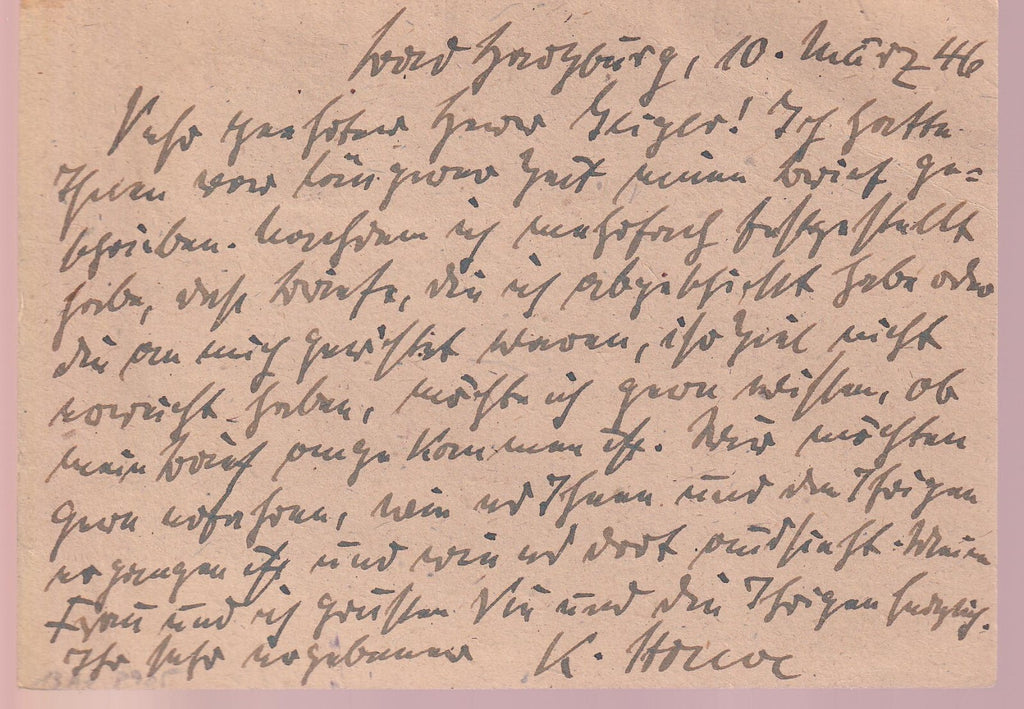 Bad Harzburg, 10. März 46
Sehr geehrter Herr Geiger! Ich hatte
Ihnen vor längerer Zeit einen Brief ge=
schrieben. Nachdem ich mehrfach festgestellt
habe, dass Briefe, die ich abgeschickt habe oder
die an mich gerichtet waren, ihr Ziel nicht
erreicht haben, möchte ich gern wissen, ob
mein Brief angekommen ist. Wir möchten
gern erfahren, wie es Ihnen und den Ihrigen
ergangen ist und wie es dort aussieht. Meine
Frau und ich grüssen Sie und die Ihrigen herzlich.
Ihr sehr ergebener K.